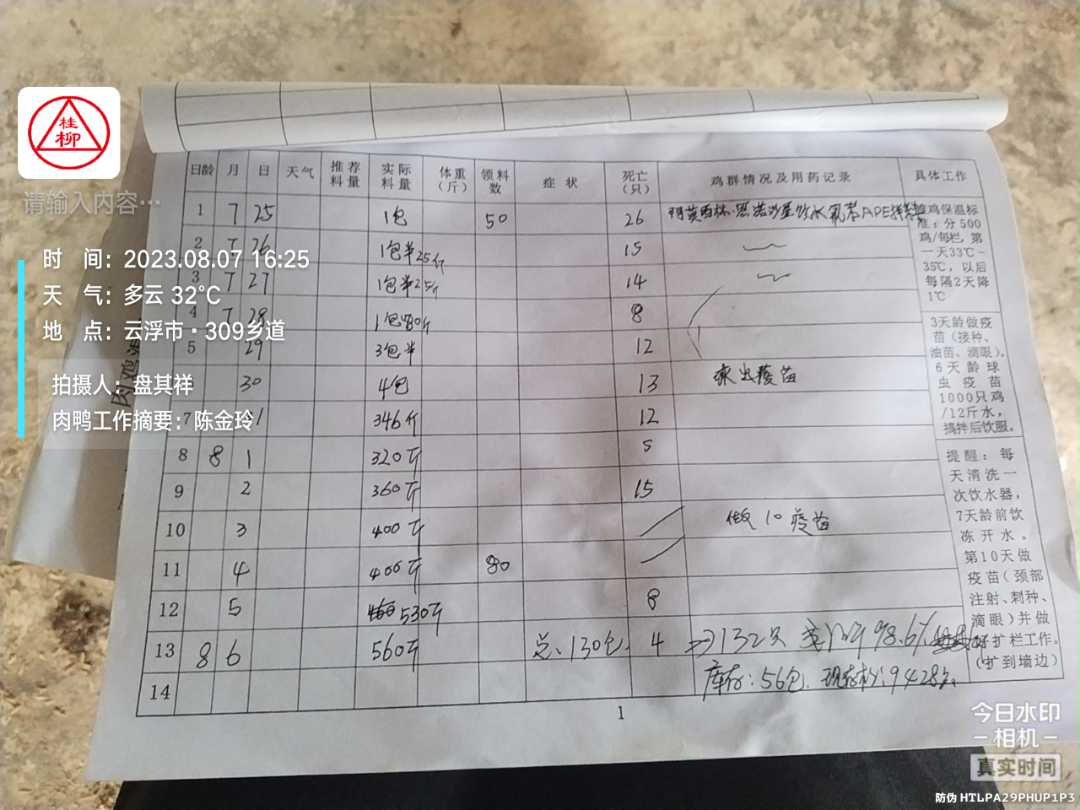 桂柳
请输入内容…
时 间：2023.08.07 16:25
天 气：多云 32℃
地 点：云浮市·309乡道
拍摄人：盘其祥
肉鸭工作摘要：陈金玲
日龄 月 日 天气 推荐料量 实际料量 体重（斤） 领料数 症状 死亡（只） 鸡群情况及用药记录 具体工作
1 7 25 1包 50 26
2 7 26 1包半25斤 15
3 7 27 1包半25斤 14
4 7 28 8
5 29 3包半 12
30 4包 13 疫苗
7 1 346斤 12
8 8 1 320斤 5
9 2 360斤 15
10 3 400斤 做10疫苗
11 4 400斤 80
12 5 530斤 8
13 8 6 560斤 总：130包 4 132只 98.6%
14 库存：56包. 9428
鸡保温标
准：分500
鸡/每栏，第
一天33℃-
35℃，以后
每隔2天降
1℃
3天龄做疫
苗（接种、
油苗、滴眼）。
6天龄球
虫疫苗
1000只鸡
/12斤水，
搞拌后饮服。
提醒：每
天清洗一
次饮水器，
7天龄前饮
冻开水。
第10天做
疫苗（颈部
注射、刺种、
滴眼）并做
好扩栏工作。
（扩到墙边）
1
今日水印
-相机-
真实时间
防伪 HTLPA29PHUP1P3